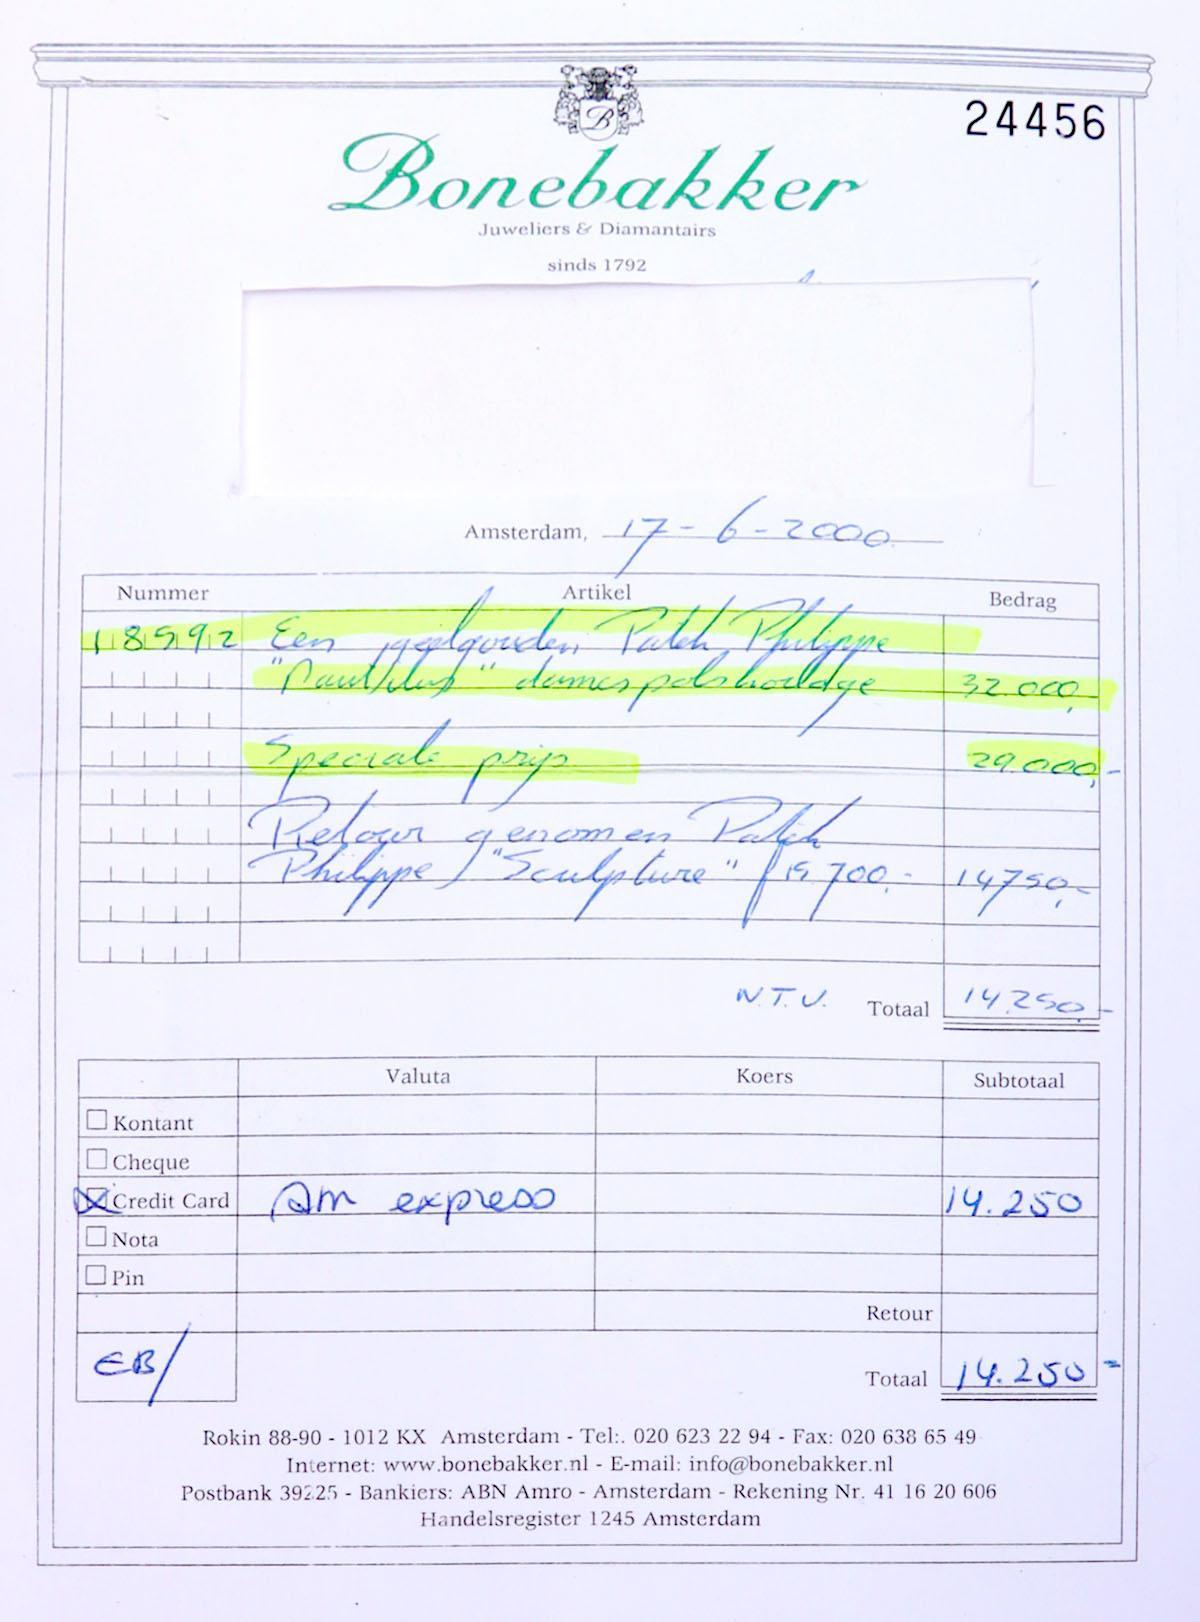 24456
B
Bonebakker
Juweliers & Diamantairs
sinds 1792
Amsterdam, 17-6-2000
Nummer Artikel Bedrag
18592 Een geelgouden Patek Philippe
"Nautilus" dames polshorloge 32.000,
Speciale prijs 29.000,-
Retour genomen Patek
Philippe "Sculpture" 19.700,- 14750,-
N.T.V. Totaal 14.250,-
Valuta Koers Subtotaal
Kontant
Cheque
Credit Card Am express 14.250
Nota
Pin
Retour
EB/ Totaal 14.250=
Rokin 88-90 - 1012 KX Amsterdam - Tel:. 020 623 22 94 - Fax: 020 638 65 49
Internet: www.bonebakker.nl - E-mail: info@bonebakker.nl
Postbank 39225 - Bankiers: ABN Amro - Amsterdam - Rekening Nr. 41 16 20 606
Handelsregister 1245 Amsterdam